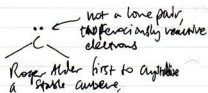 not a lone pair,
two ferociously reactive
electrons
C
Roger Alder first to
a stable carbene,